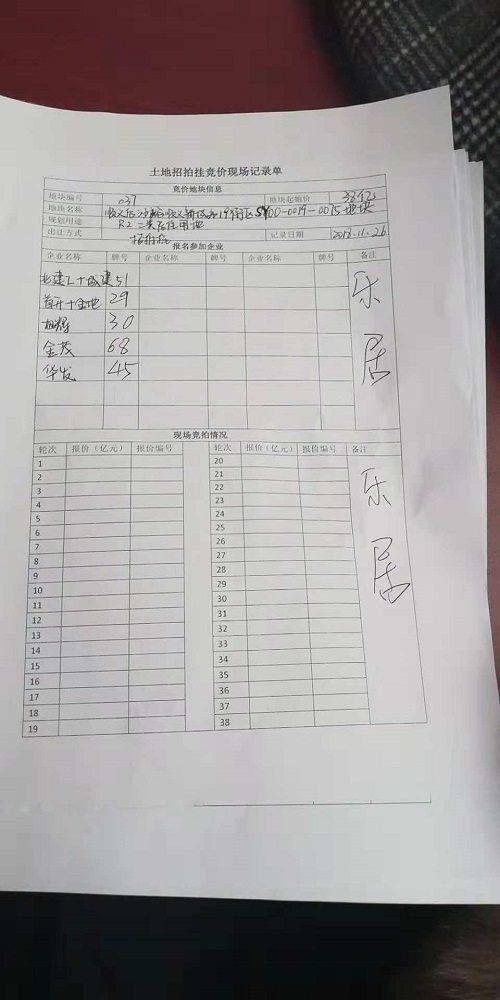 土地招拍挂竞价现场记录单
竞价地块信息
地块编号 037 地块起始价 38亿
地块名称 顺义后沙峪 19街区SY00-0019-0015地块
规划用途 R2二类居住用地
出让方式 招拍挂 记录日期 2018.11.26
报名参加企业
企业名称 牌号 企业名称 牌号 企业名称 牌号 备注
北建工+城建 51
首开+金地 29
旭辉 30
金茂 68
华发 45
乐居
现场竞拍情况
轮次 报价（亿元） 报价编号 轮次 报价（亿元） 报价编号 备注
1 20
2 21
3 22
4 23
5 24
6 25
7 26
8 27
9 28
10 29
11 30
12 31
13 32
14 33
15 34
16 35
17 36
18 37
19 38
乐居